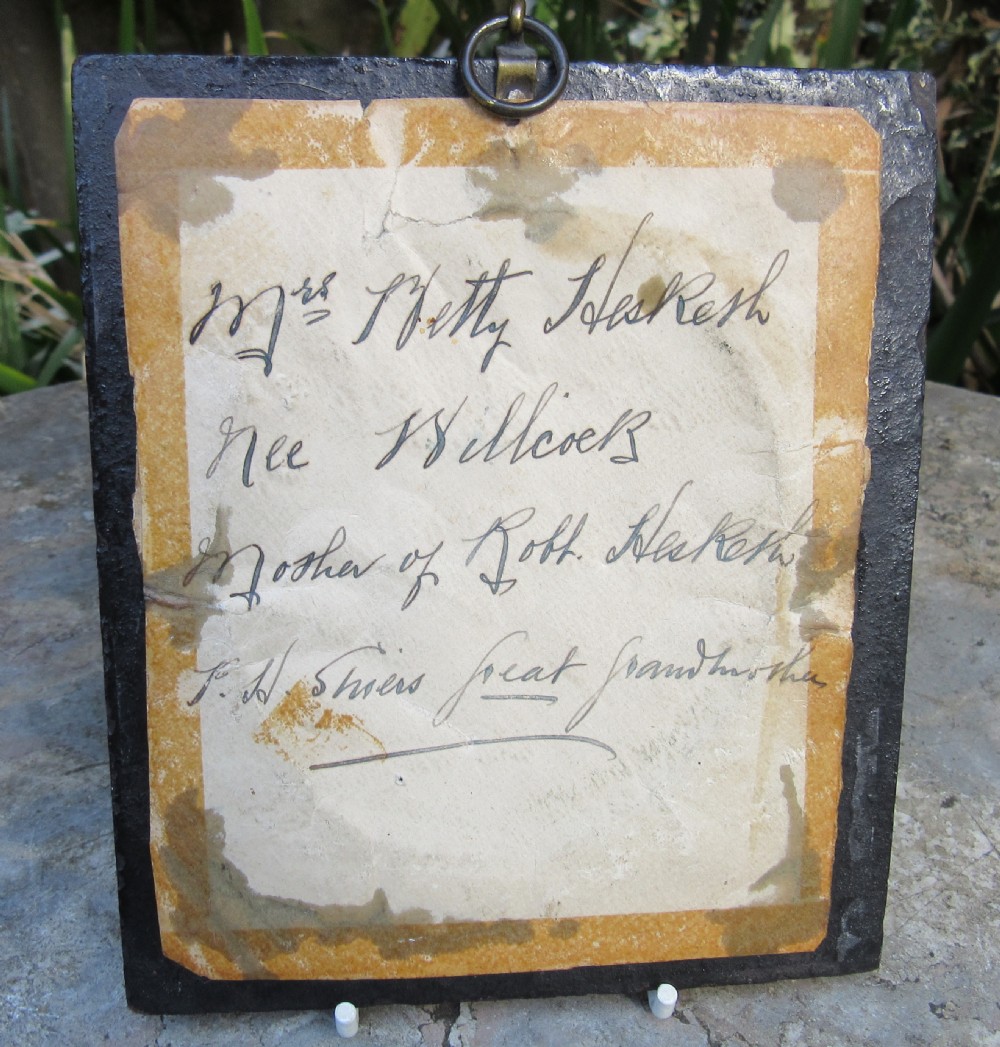 Mrs Betty Hesketh
Nee Willcock
Mother of Robt. Hesketh
H. Shiers Great Grandmother